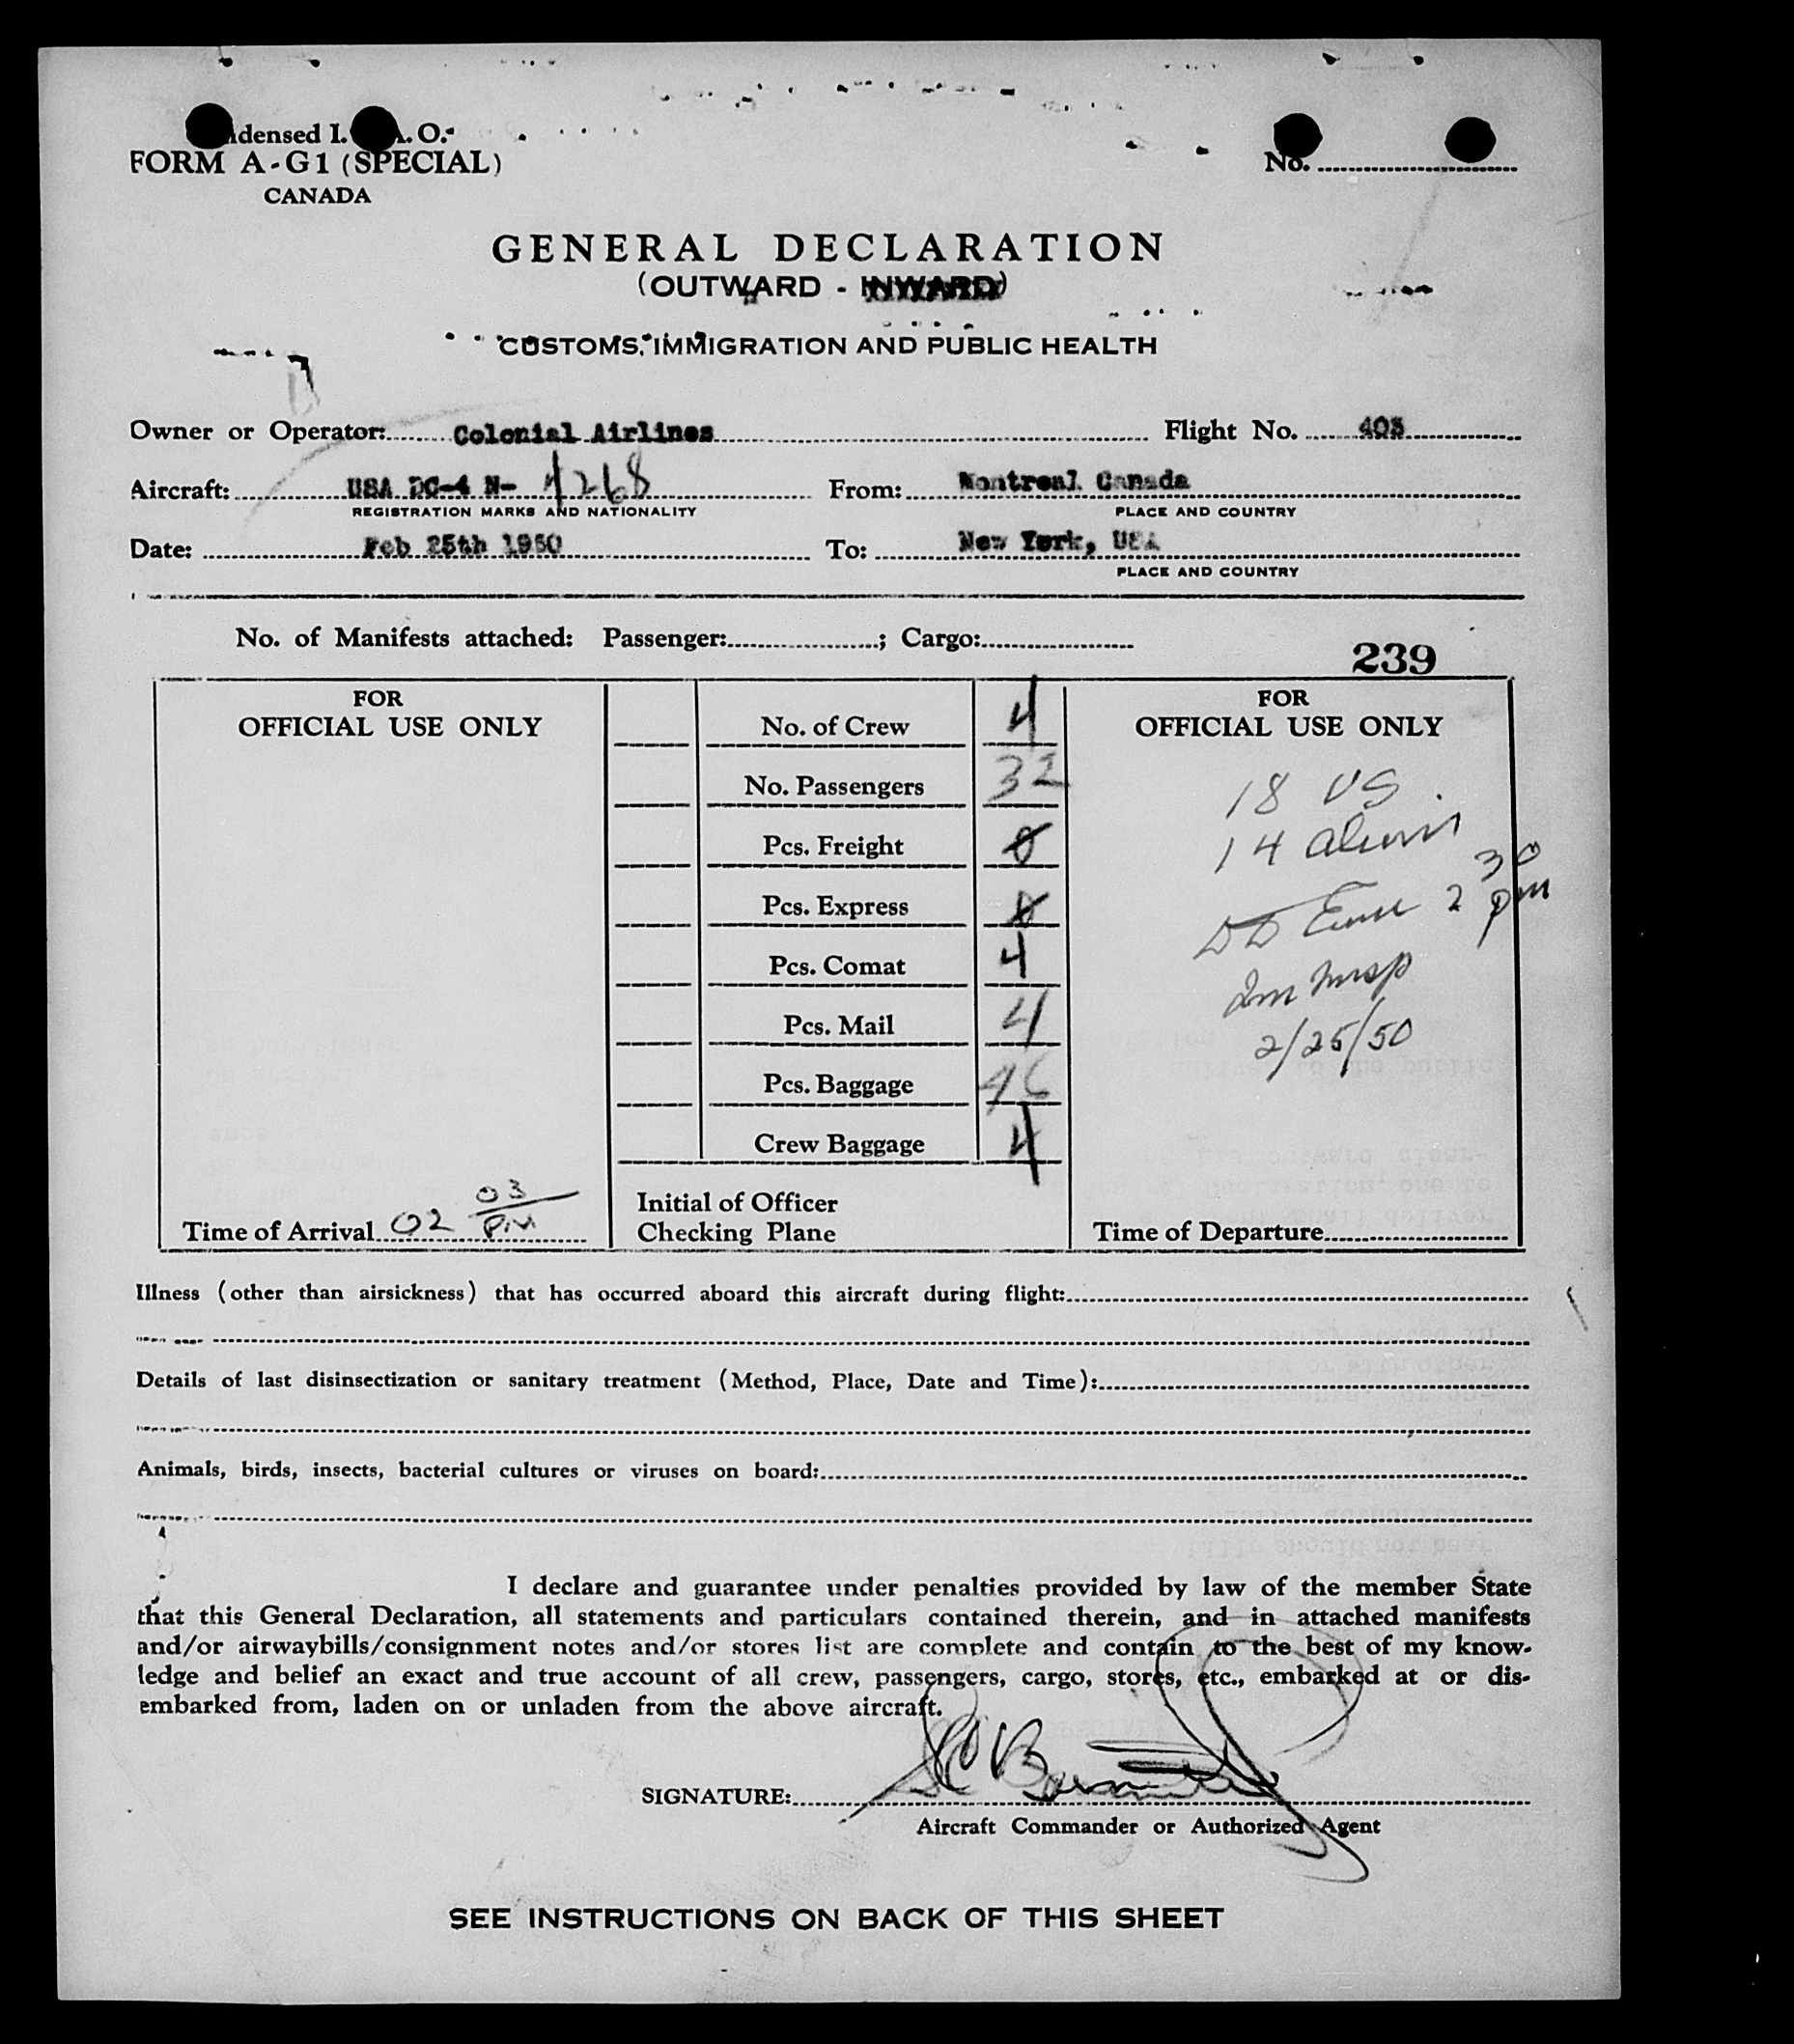 densed I. A. O.
FORM A-G1 (SPECIAL)
CANADA
No.
GENERAL DECLARATION
(OUTWARD - INWARD)
CUSTOMS, IMMIGRATION AND PUBLIC HEALTH
Owner or Operator: Colonial Airlines Flight No. 403
Aircraft: USA DC-4 N- 4268 From: Montreal Canada
REGISTRATION MARKS AND NATIONALITY PLACE AND COUNTRY
Date: Feb 25th 1950 To: New York, USA
PLACE AND COUNTRY
No. of Manifests attached: Passenger: ; Cargo:
239
FOR
OFFICIAL USE ONLY
Time of Arrival 02 03 P.M
No. of Crew 4
No. Passengers 32
Pcs. Freight 0
Pcs. Express 0
Pcs. Comat 4
Pcs. Mail 4
Pcs. Baggage 46
Crew Baggage 4
Initial of Officer
Checking Plane
FOR
OFFICIAL USE ONLY
18 US
14 aliens
2 30 pm
Insp
2/25/50
Time of Departure
Illness (other than airsickness) that has occurred aboard this aircraft during flight:
Details of last disinsectization or sanitary treatment (Method, Place, Date and Time):
Animals, birds, insects, bacterial cultures or viruses on board:
I declare and guarantee under penalties provided by law of the member State
that this General Declaration, all statements and particulars contained therein, and in attached manifests
and/or airwaybills/consignment notes and/or stores list are complete and contain to the best of my know-
ledge and belief an exact and true account of all crew, passengers, cargo, stores, etc., embarked at or dis-
embarked from, laden on or unladen from the above aircraft.
SIGNATURE:
Aircraft Commander or Authorized Agent
SEE INSTRUCTIONS ON BACK OF THIS SHEET